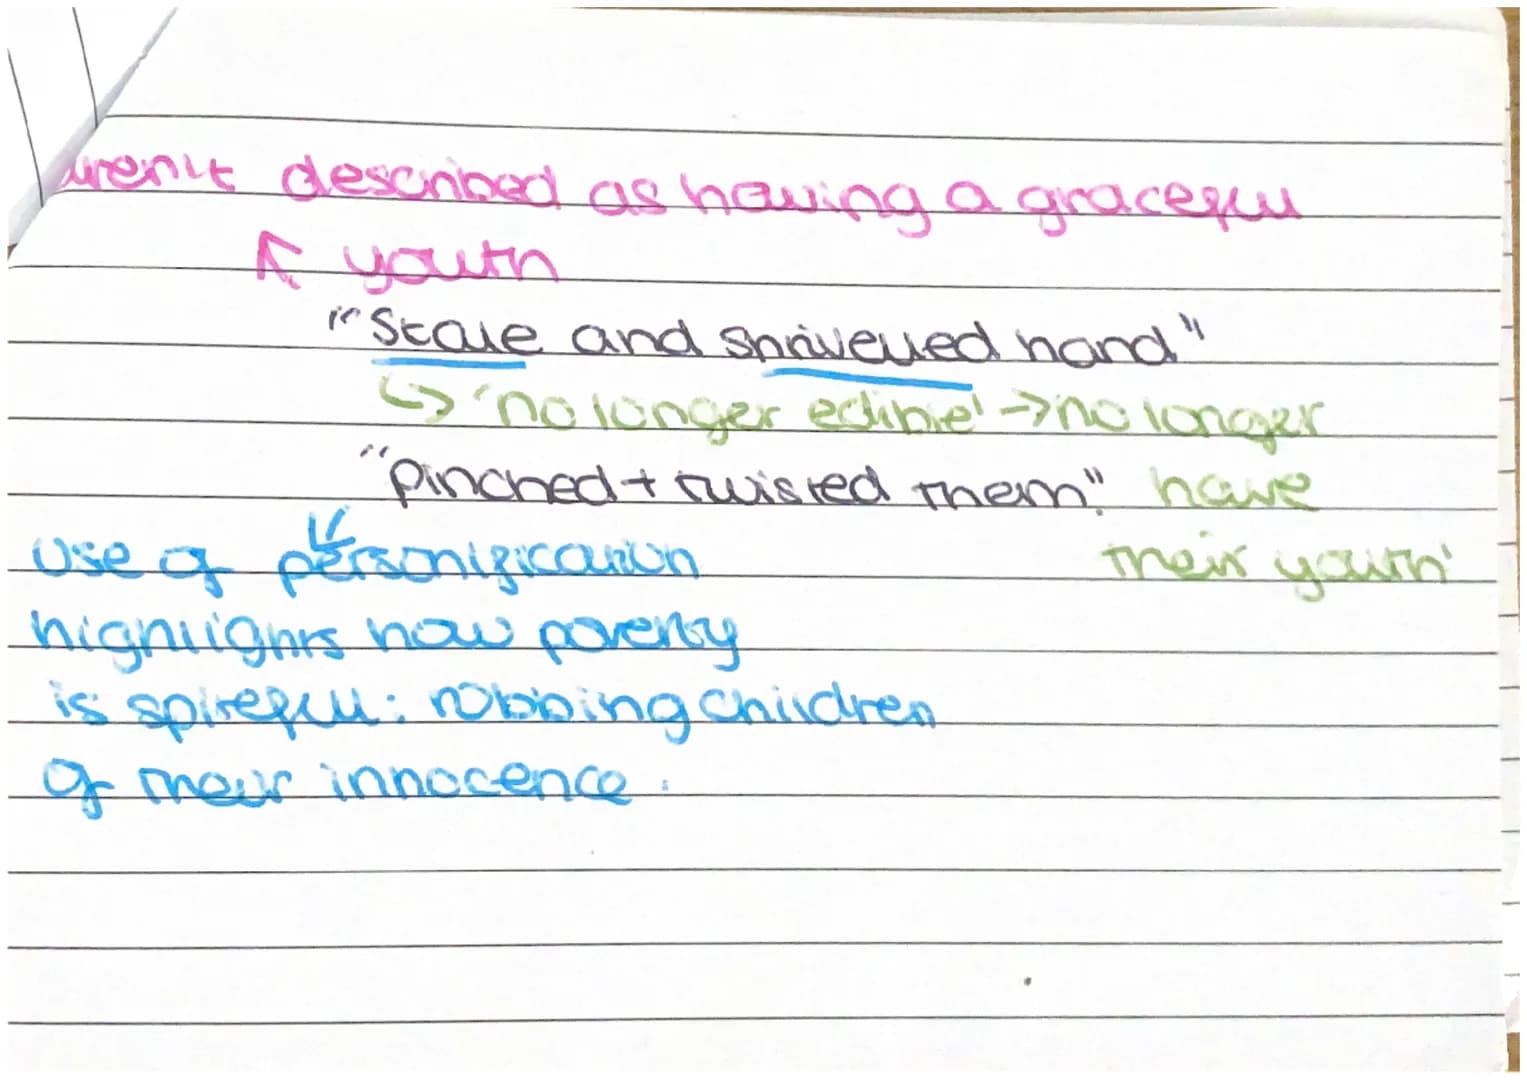 aren't described as having a graceful
↑ youth
"Stale and shrivelled hand"
↳ 'no longer edible' → 'no longer
"pinched + twisted them". have
their youth'
use of personification
highlights how poverty
is spiteful: robbing children
of their innocence.